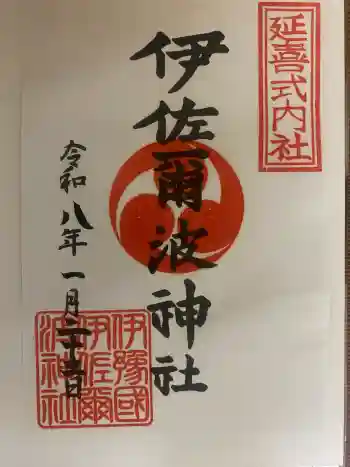 延喜式内社
伊佐爾波神社
令和八年一月二十五日
伊豫國
伊佐爾
波神社